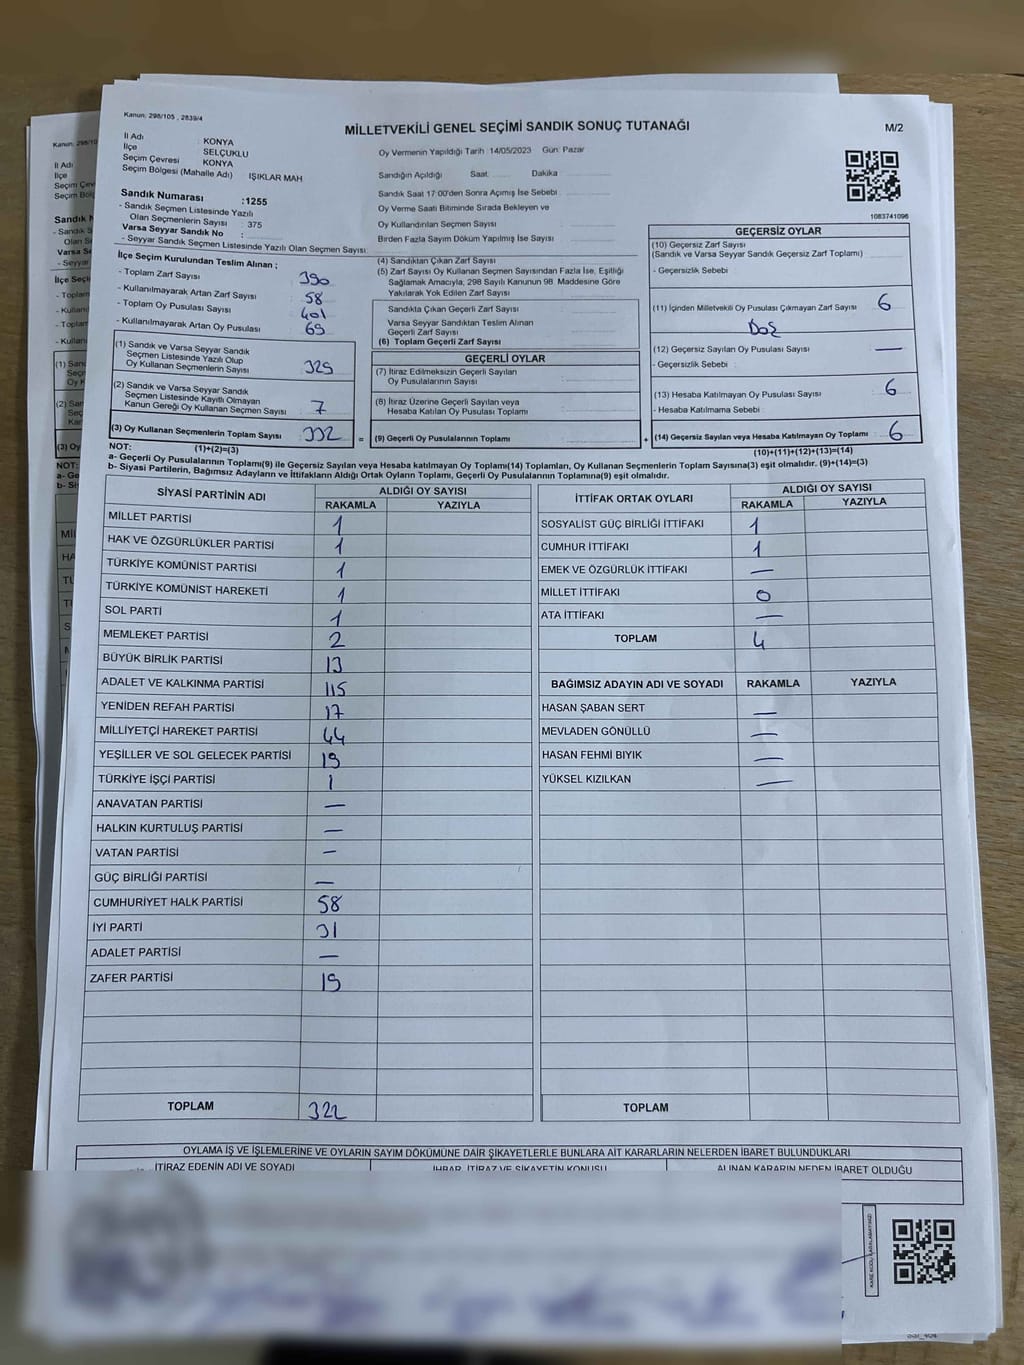 Kanun: 298/105 , 2839/4
MİLLETVEKİLİ GENEL SEÇİMİ SANDIK SONUÇ TUTANAĞI
M/2
İl Adı : KONYA
İlçe SELÇUKLU
Seçim Çevresi KONYA
Seçim Bölgesi (Mahalle Adı) IŞIKLAR MAH
Sandık Numarası :1255
- Sandık Seçmen Listesinde Yazılı
Olan Seçmenlerin Sayısı : 375
Varsa Seyyar Sandık No :
- Seyyar Sandık Seçmen Listesinde Yazılı Olan Seçmen Sayısı:
Oy Vermenin Yapıldığı Tarih :14/05/2023 Gün: Pazar
Sandığın Açıldığı Saat: Dakika
Sandık Saat 17:00'den Sonra Açımış İse Sebebi :
Oy Verme Saati Bitiminde Sırada Bekleyen ve
Oy Kullandırılan Seçmen Sayısı
Birden Fazla Sayım Döküm Yapılmış İse Sayısı
1083741096
İlçe Seçim Kurulundan Teslim Alınan ;
- Toplam Zarf Sayısı 390
- Kullanılmayarak Artan Zarf Sayısı : 58
- Toplam Oy Pusulası Sayısı : 401
- Kullanılmayarak Artan Oy Pusulası : 69
(1) Sandık ve Varsa Seyyar Sandık
Seçmen Listesinde Yazılı Olup
Oy Kullanan Seçmenlerin Sayısı 325
(2) Sandık ve Varsa Seyyar Sandık
Seçmen Listesinde Kayıtlı Olmayan
Kanun Gereği Oy Kullanan Seçmen Sayısı : 7
(3) Oy Kullanan Seçmenlerin Toplam Sayısı : 332 =
(4) Sandıktan Çıkan Zarf Sayısı
(5) Zarf Sayısı Oy Kullanan Seçmen Sayısından Fazla İse, Eşitliği
Sağlamak Amacıyla, 298 Sayılı Kanunun 98 Maddesine Göre
Yakılarak Yok Edilen Zarf Sayısı
Sandıkta Çıkan Geçerli Zarf Sayısı
Varsa Seyyar Sandıktan Teslim Alınan
Geçerli Zarf Sayısı
(6) Toplam Geçerli Zarf Sayısı
GEÇERLİ OYLAR
(7) İtiraz Edilmeksizin Geçerli Sayılan
Oy Pusulalarının Sayısı
(8) İtiraz Üzerine Geçerli Sayılan veya
Hesaba Katılan Oy Pusulası Toplamı
(9) Geçerli Oy Pusulalarının Toplamı +
GEÇERSİZ OYLAR
(10) Geçersiz Zarf Sayısı
(Sandık ve Varsa Seyyar Sandık Geçersiz Zarf Toplamı)
- Geçersizlik Sebebi :
(11) İçinden Milletvekili Oy Pusulası Çıkmayan Zarf Sayısı : 6
Boş
(12) Geçersiz Sayılan Oy Pusulası Sayısı : —
- Geçersizlik Sebebi :
(13) Hesaba Katılmayan Oy Pusulası Sayısı : 6
- Hesaba Katılmama Sebebi :
(14) Geçersiz Sayılan veya Hesaba Katılmayan Oy Toplamı : 6
NOT: (1)+(2)=(3) (10)+(11)+(12)+(13)=(14)
a- Geçerli Oy Pusulalarının Toplamı(9) ile Geçersiz Sayılan veya Hesaba katılmayan Oy Toplamı(14) Toplamları, Oy Kullanan Seçmenlerin Toplam Sayısına(3) eşit olmalıdır. (9)+(14)=(3)
b- Siyasi Partilerin, Bağımsız Adayların ve İttifakların Aldığı Ortak Oyların Toplamı, Geçerli Oy Pusulalarının Toplamına(9) eşit olmalıdır.
SİYASİ PARTİNİN ADI ALDIĞI OY SAYISI
RAKAMLA YAZIYLA
MİLLET PARTİSİ 1
HAK VE ÖZGÜRLÜKLER PARTİSİ 1
TÜRKİYE KOMÜNİST PARTİSİ 1
TÜRKİYE KOMÜNİST HAREKETİ 1
SOL PARTİ 1
MEMLEKET PARTİSİ 2
BÜYÜK BİRLİK PARTİSİ 13
ADALET VE KALKINMA PARTİSİ 115
YENİDEN REFAH PARTİSİ 17
MİLLİYETÇİ HAREKET PARTİSİ 44
YEŞİLLER VE SOL GELECEK PARTİSİ 19
TÜRKİYE İŞÇİ PARTİSİ 1
ANAVATAN PARTİSİ —
HALKIN KURTULUŞ PARTİSİ —
VATAN PARTİSİ —
GÜÇ BİRLİĞİ PARTİSİ —
CUMHURİYET HALK PARTİSİ 58
İYİ PARTİ 31
ADALET PARTİSİ —
ZAFER PARTİSİ 19
TOPLAM 322
İTTİFAK ORTAK OYLARI ALDIĞI OY SAYISI
RAKAMLA YAZIYLA
SOSYALİST GÜÇ BİRLİĞİ İTTİFAKI 1
CUMHUR İTTİFAKI 1
EMEK VE ÖZGÜRLÜK İTTİFAKI —
MİLLET İTTİFAKI 0
ATA İTTİFAKI —
TOPLAM 4
BAĞIMSIZ ADAYIN ADI VE SOYADI RAKAMLA YAZIYLA
HASAN ŞABAN SERT —
MEVLADEN GÖNÜLLÜ —
HASAN FEHMİ BIYIK —
YÜKSEL KIZILKAN —
TOPLAM
OYLAMA İŞ VE İŞLEMLERİNE VE OYLARIN SAYIM DÖKÜMÜNE DAİR ŞİKAYETLERLE BUNLARA AİT KARARLARIN NELERDEN İBARET BULUNDUKLARI
İTİRAZ EDENİN ADI VE SOYADI İHBAR, İTİRAZ VE ŞİKAYETİN KONUSU ALINAN KARARIN NEDEN İBARET OLDUĞU
KARE KODU KARALAMAYINIZ!